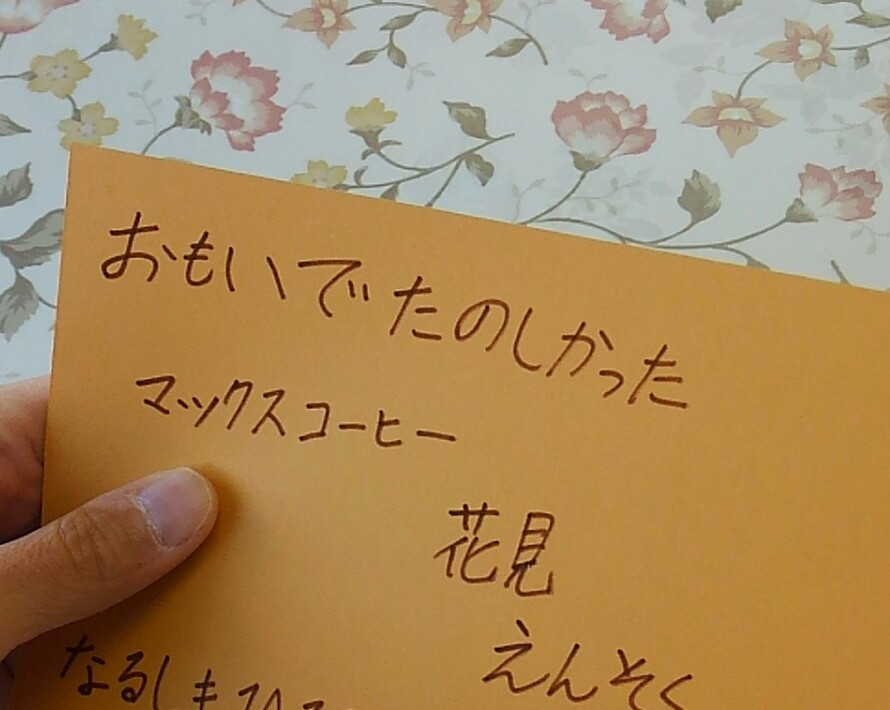 おもいで たのしかった
マックスコーヒー
花見
えんそく